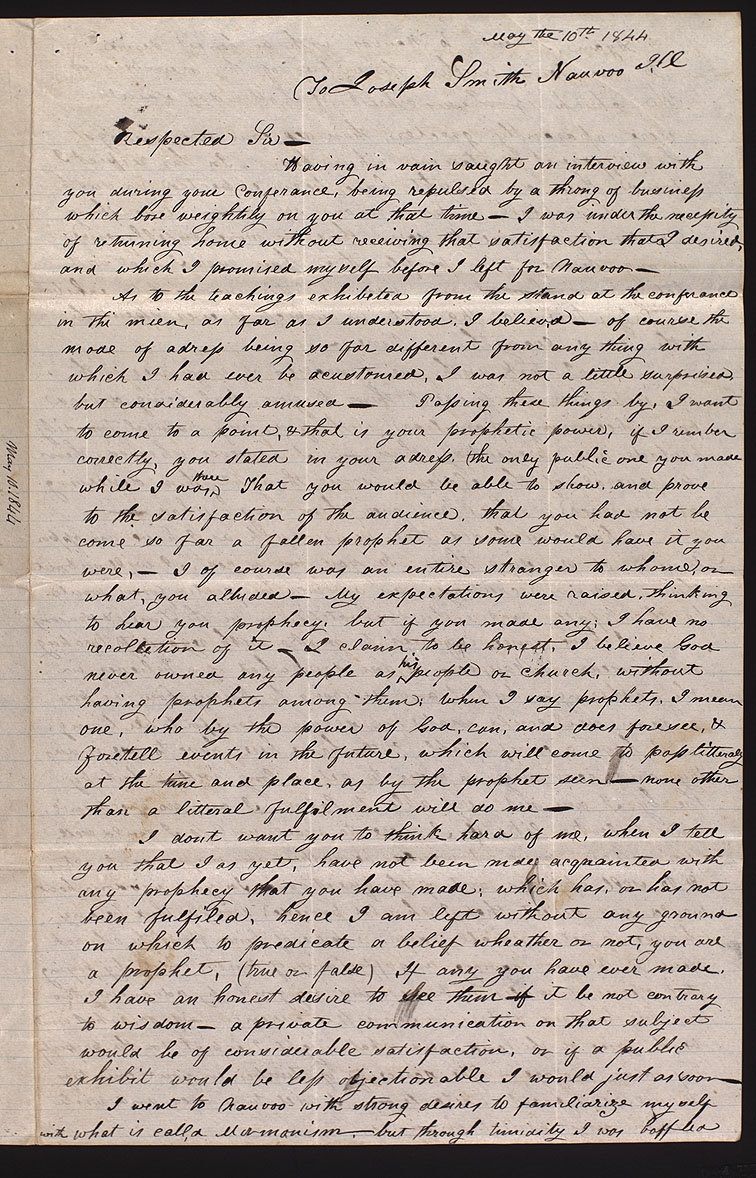 May the 10th 1844
To Joseph Smith Nauvoo Ill
Respected Sir —
Having in vain saught an interview with
you during your Conferance, being repulsed by a throng of business
which bore weightily on you at that time — I was under the necessity
of returning home without receiving that satisfaction that I desired,
and which I promised myself before I left for Nauvoo —
As to the teachings exhibeted from the stand at the conferance
in the mien, as far as I understood, I believed — of course the
mode of adress being so far different from any thing with
which I had ever be acustoured, I was not a little surprised,
but considerably amused — Passing these things by, I want
to come to a point, & that is your prophetic power, if I rember
correctly, you stated in your adress (the only public one you made
while I was there, That you would be able to show, and prove
to the satisfaction of the audience, that you had not be
come so far a fallen prophet as some would have it you
were, — I of course was an entire stranger to whome, or
what, you alluded — My expectations were raised, thinking
to hear you prophecy, but if you made any; I have no
recolletion of it — I claim to be honest, I believe God
never owned any people as his people or church, without
having prophets among them; when I say prophets, I mean
one, who by the power of God, can, and does foresee, &
foretell events in the future, which will come to pass litterally
at the time and place, as by the prophet seen — none other
than a litteral fulfilment will do me —
I dont want you to think hard of me, when I tell
you that I as yet, have not been made acquainted with
any prophecy that you have made; which has, or has not
been fulfiled, hence I am left without any ground
on which to predicate a belief wheather or not, you are
a prophet, (true or false) If any you have ever made,
I have an honest desire to see them if it be not contrary
to wisdom — a private communication on that subject
would be of considerable satisfaction, or if a public
exhibit would be less objectionable I would just as soon —
I went to Nauvoo with strong desires to familiarize myself
with what is calld Mormonism — but through timidity I was baffled
May 10. 1844